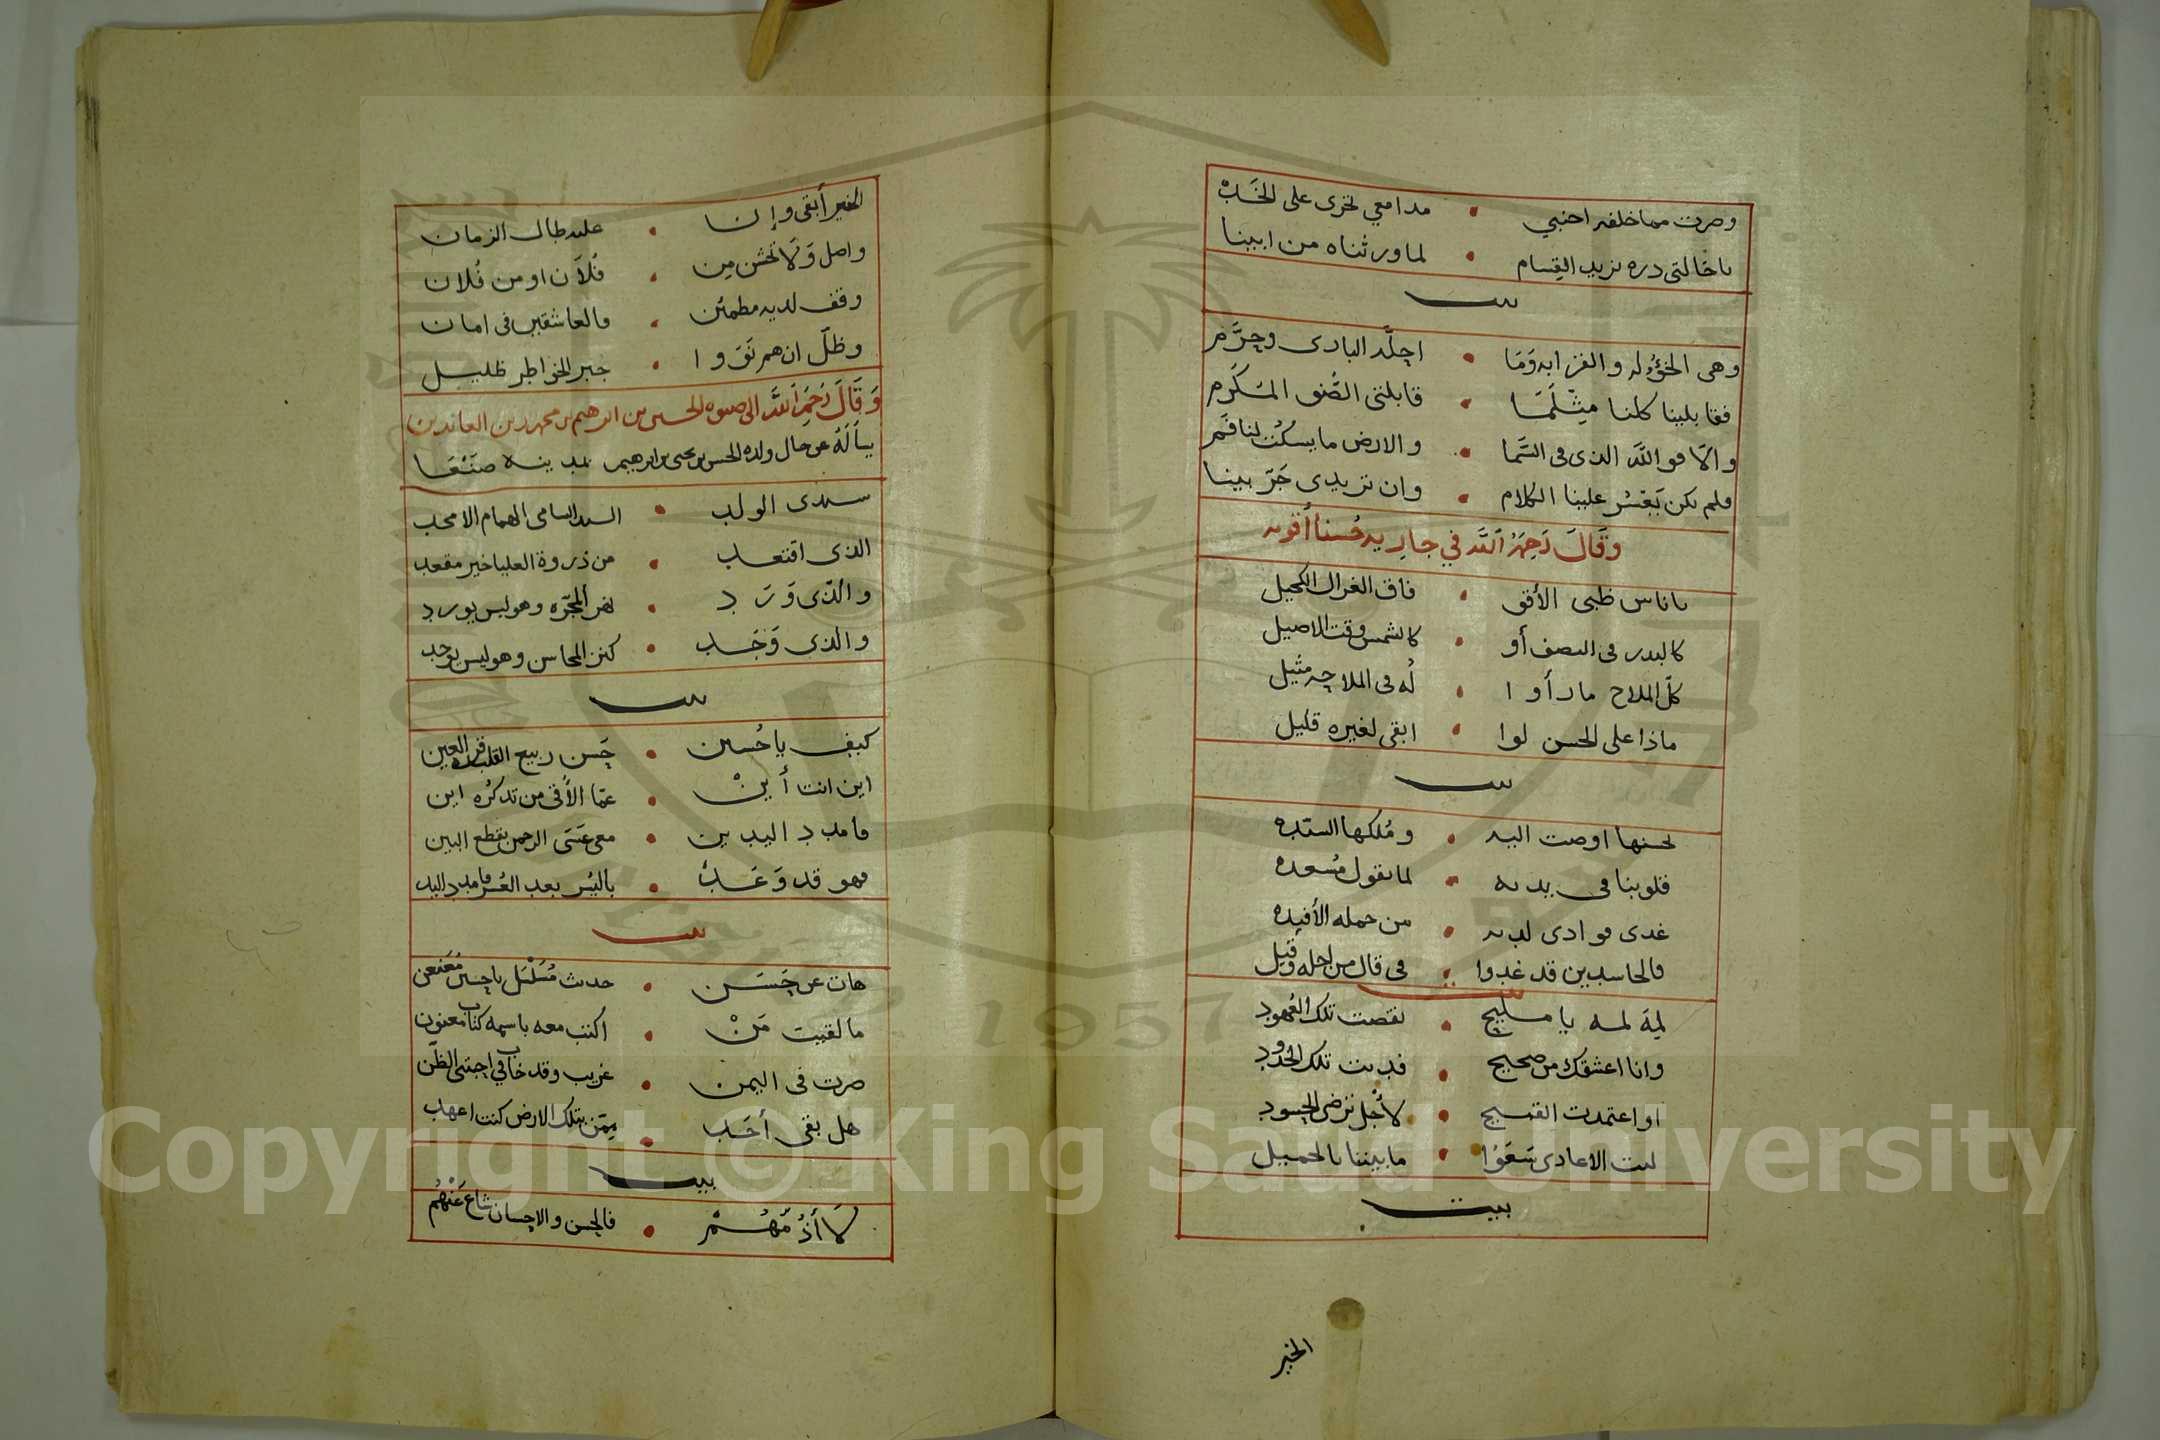 وصرت مما خلفه اجنبي • مدامعي تجري على الخد
يا خالتي دره نريد القسام • لما ورثناه من ابينا
بيت
وهي الخؤوله والقرابه وما • احله الباري وحرم
فقابلينا كلنا مثلما • قابلتي الصنو المكرم
والا فوالله الذي في السما • والارض ما يسكت لنا فم
ولم يكن يعسر علينا الكلام • وان تريدي جر بينا
وقال رحمه الله في جاريه حسنا
ياناس ظبي الأفق • فاق الغزال الكحيل
كالبدر في النصف أو • كالشمس وقت الاصيل
كل الملاح ما رأوا • له في الملاحه مثيل
ماذا على الحسن لوا • ابقى لغيره قليل
بيت
لحسنها اوصت اليه • وملكها
قلوبنا في يديه • لما يقول مسعده
غدى فوادى لديه • من جمله الأفيده
فالحاسدين قد غدوا • في قال من اجله وقيل
بيت
لمه لمه يا مليح • نقضت تلك العهود
وانا اعشقك من صحيح • فديت تلك الخدود
او اعتمدت القبيح • لأجل ترضي الحسود
ليت الاعادى سعوا • ما بيننا بالجميل
بيت
الخير
الخير أبقى وإن • عليه طال الزمان
واصل ولا تخش من • فلان او من فلان
وقف لديه مطمئن • فالعاشقين في امان
وظل ان هم نووا • جبر الخواطر ظليل
وقال رحمه الله الى صنوه الحسين بن ابرهيم بن محمد زين العابدين
يسأله عن حال ولده الحسن بن يحيى بن ابرهيم بمدينه صنعا
سيدى الولد • السيد السامى الهمام الامجد
الذى اقتعد • من ذروة العليا خير مقعد
والذى ورد • نهر المجره وهو ليس يورد
والذى وجد • كنز المحاسن وهو ليس يوجد
بيت
كيف يا حسين • حسن ربيع القلب قره العين
اين انت أين • عما الأقى من تذكره اين
فامدد اليدين • معي عسى الرحمن يقطع البين
فهو قد وعد • باليسر بعد العسر فامدد اليد
بيت
هات عن حسن • حديث مسلسل يا حسين معنعن
ما لقيت من • اكتب معه باسمه كتاب معنون
صرت في اليمن • غريب وقد خاب في احبتي الظن
هل بقي أحد • ممن بتلك الارض كنت اعهد
بيت
لا أذمهم • فالحسن والاحسان شاع عنهم
Copyright © King Saud University
1957